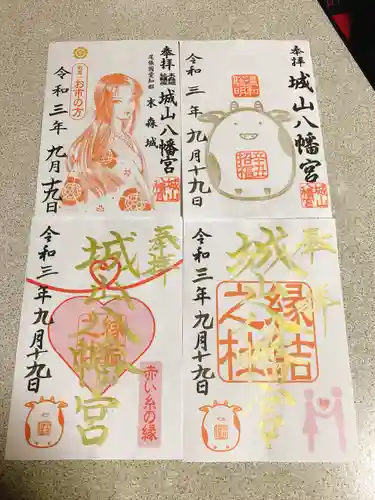 奉拝
尾張國愛知郡
末森城
城山八幡宮
お市の方
令和三年九月十九日
奉拝
城山八幡宮
令和三年九月十九日
奉拝
城山八幡宮
赤い糸の縁
令和三年九月十九日
奉拝
城山八幡宮
縁結
之社
令和三年九月十九日